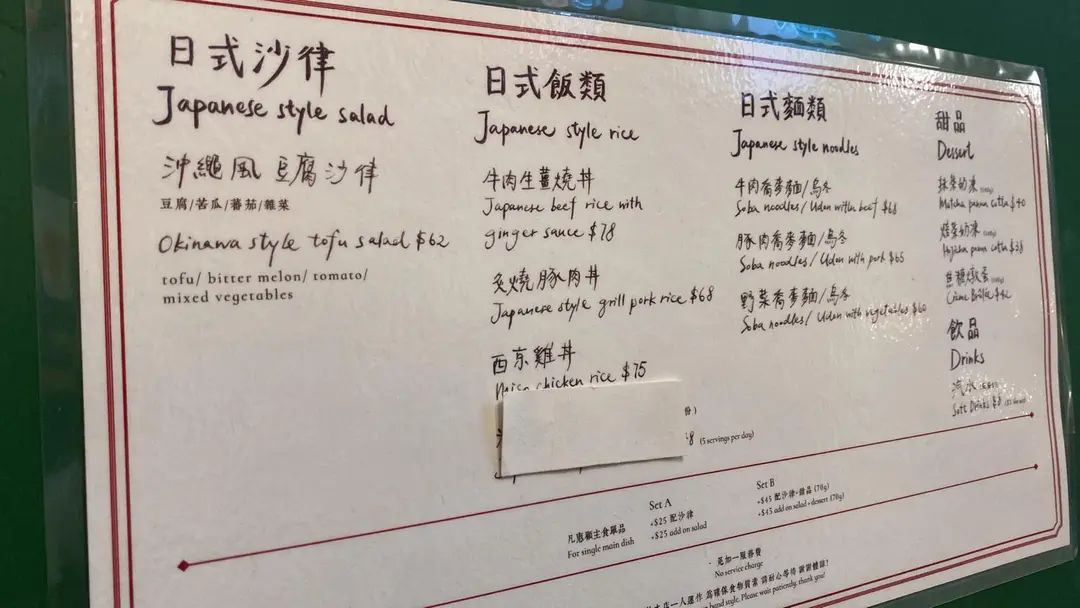 日式沙律
Japanese style salad
沖繩風豆腐沙律
豆腐/苦瓜/蕃茄/雜菜
Okinawa style tofu salad $62
tofu/ bitter melon/ tomato/
mixed vegetables
日式飯類
Japanese style rice
牛肉生薑燒丼
Japanese beef rice with
ginger sauce $78
炙燒豚肉丼
Japanese style grill pork rice $68
西京雞丼
chicken rice $75
份)
8 (5 servings per day)
日式麵類
Japanese style noodles
牛肉喬麥麵/烏冬
Soba noodles/ Udon with beef $68
豚肉喬麥麵/烏冬
Soba noodles/ Udon with pork $65
野菜喬麥麵/烏冬
Soba noodles/ Udon with vegetables $60
甜品
Dessert
抹茶奶凍
Matcha panna cotta $40
焙茶奶凍
Hojicha panna cotta $38
焦糖燉蛋
Crème Brûlée $42
飲品
Drinks
汽水
Soft Drinks $8
凡惠顧主食單品
For single main dish
Set A
+$25 配沙律
+$25 add on salad
Set B
+$45 配沙律+甜品 (70g)
+$45 add on salad + dessert (70g)
· 免加一服務費
No service charge
本店一人運作 為確保食物質素 請耐心等待 謝謝體諒!
hand style. Please wait patiently, thank you!